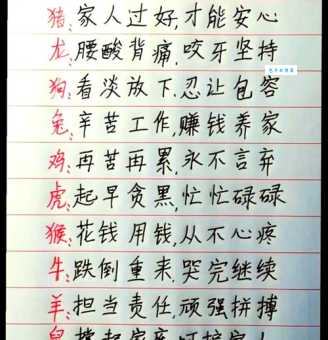 猪:家人过好,才能安心
龙:腰酸背痛,咬牙坚持
狗:看淡放下,忍让包容
兔:辛苦工作,赚钱养家
鸡:再苦再累,永不言弃
虎:起早贪黑,忙忙碌碌
猴:花钱用钱,从不心疼
牛:跌倒重来,哭完继续
羊:担当责任,顽强拼搏